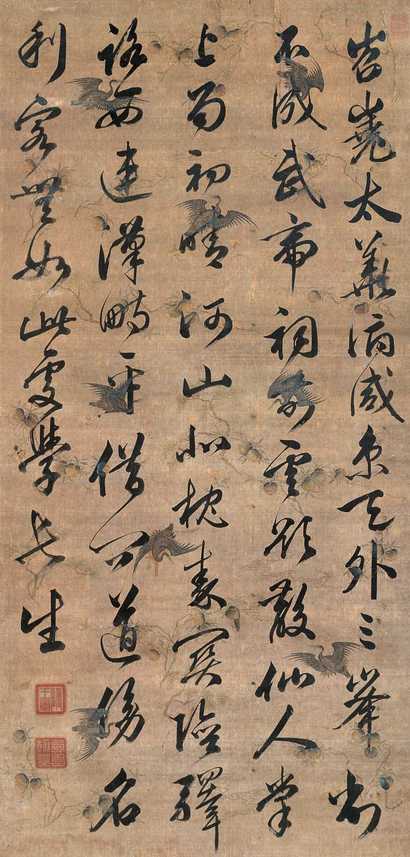 岧嶢太華俯咸京天外三峯削
不成武帝祠前雲欲散仙人掌
上雨初晴河山北枕秦關險驛
路西連漢畤平借問道傍名
利客無如此處學長生